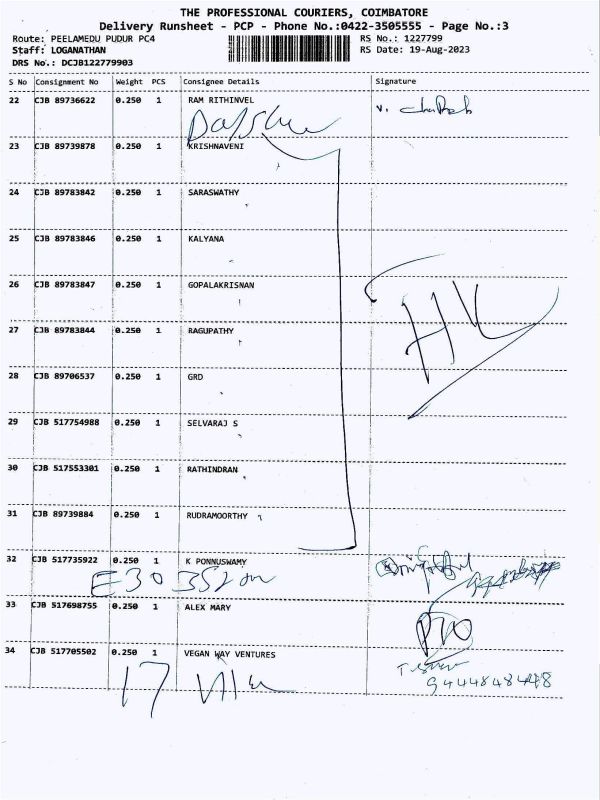 THE PROFESSIONAL COURIERS, COIMBATORE
Delivery Runsheet - PCP - Phone No.:0422-3505555 - Page No.:3
Route: PEELAMEDU PUDUR PC4 RS No.: 1227799
Staff: LOGANATHAN RS Date: 19-Aug-2023
DRS No.: DCJB122779903
S No Consignment No Weight PCS Consignee Details Signature
22 CJB 89736622 0.250 1 RAM RITHINVEL
23 CJB 89739878 0.250 1 KRISHNAVENI
24 CJB 89783842 0.250 1 SARASWATHY
25 CJB 89783846 0.250 1 KALYANA
26 CJB 89783847 0.250 1 GOPALAKRISNAN
27 CJB 89783844 0.250 1 RAGUPATHY
28 CJB 89706537 0.250 1 GRD
29 CJB 517754988 0.250 1 SELVARAJ S
30 CJB 517553301 0.250 1 RATHINDRAN
31 CJB 89739884 0.250 1 RUDRAMOORTHY
32 CJB 517735922 0.250 1 K PONNUSWAMY
33 CJB 517698755 0.250 1 ALEX MARY
34 CJB 517705502 0.250 1 VEGAN WAY VENTURES
17